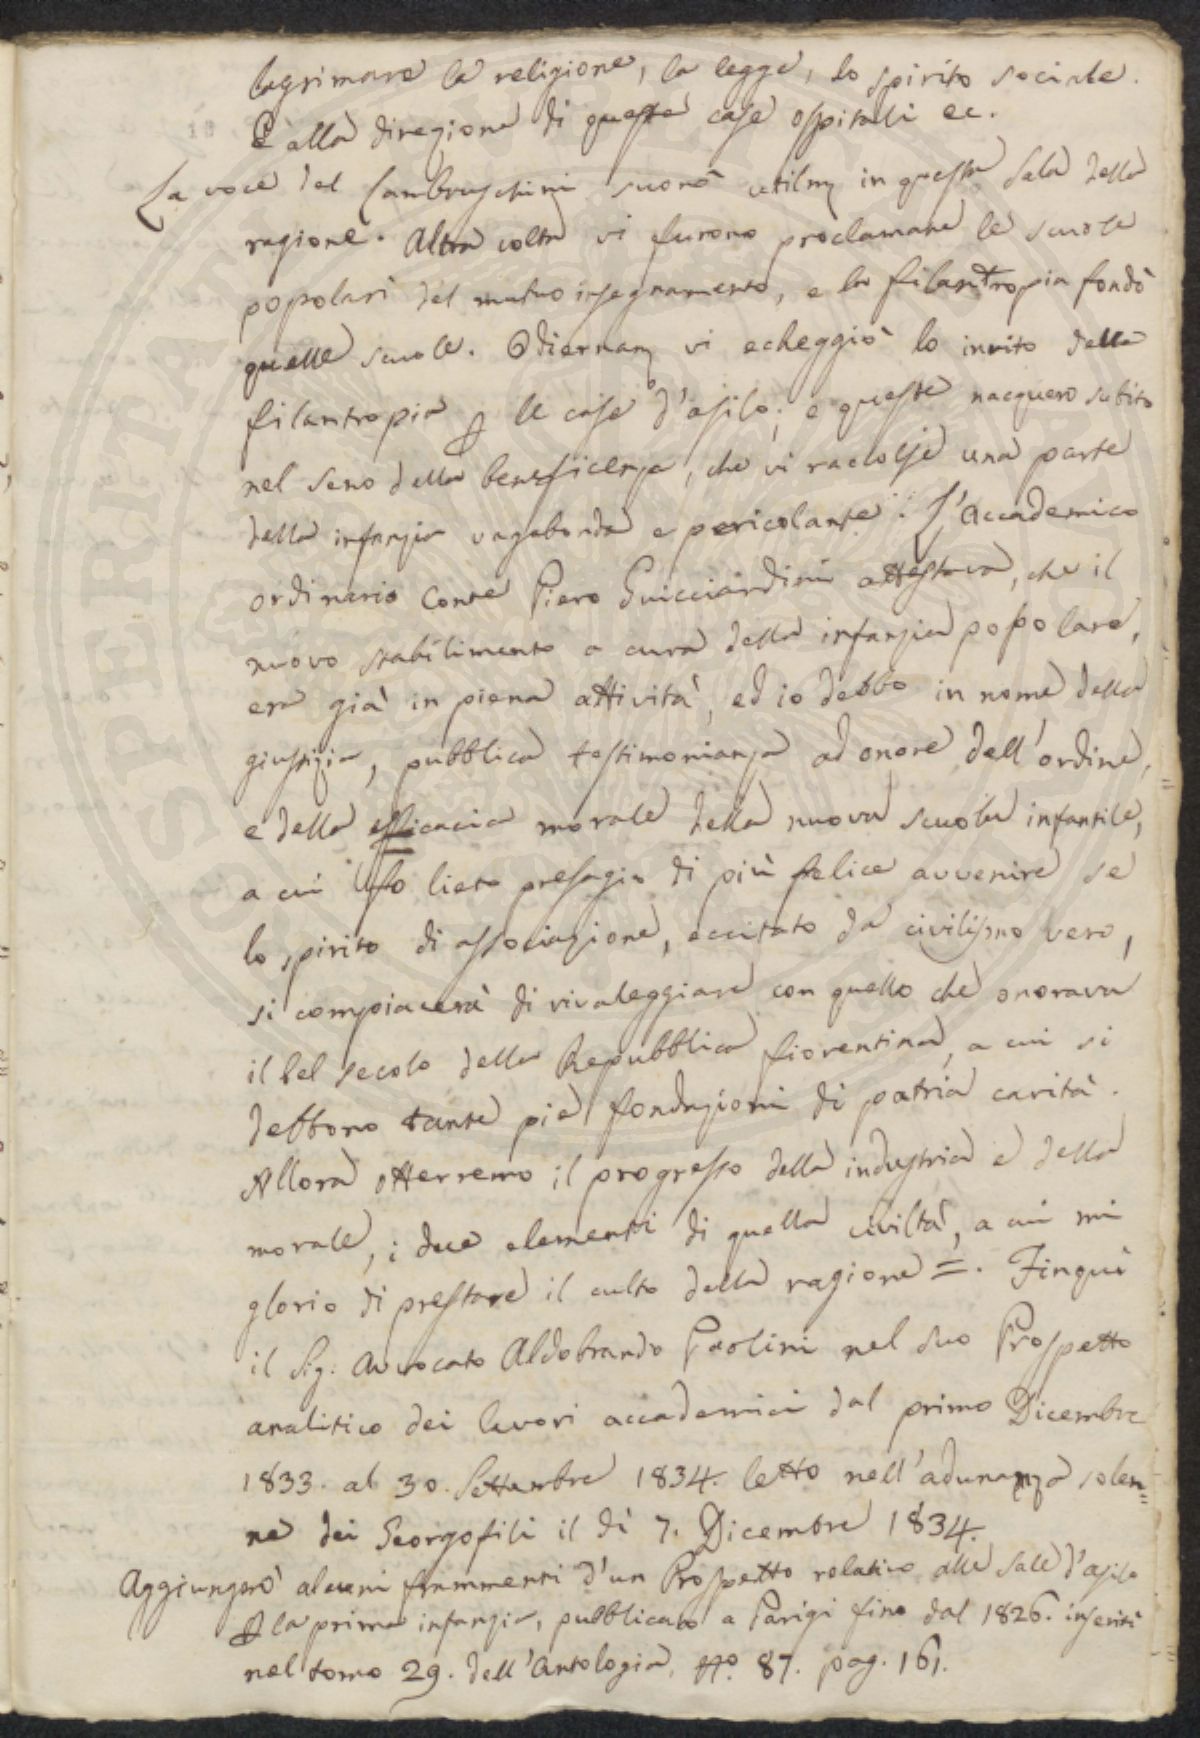 lagrimare la religione, la legge, lo spirito sociale.
E alla direzione di queste case ospitali ec.
La voce del Lambruschini suonò utilm in questa Sala della
ragione. Altra volta vi furono proclamate le scuole
popolari del mutuo insegnamento, e la filantropia fondò
quelle scuole. Odiernam vi echeggiò lo invito della
filantropia p le case d'asilo; e queste nacquero subito
nel seno della beneficenza, che vi raccolse una parte
della infanzia vagabonda e pericolante. L'Accademico
ordinario Conte Piero Guicciardini attestava, che il
nuovo stabilimento a cura della infanzia popolare,
era già in piena attività, ed io debbo in nome della
giustizia, pubblica testimonianza ad onore dell'ordine,
e della efficacia morale della nuova scuola infantile,
a cui fo lieto presagio di più felice avvenire se
lo spirito di associazione, eccitato da civilismo vero,
si compiacerà di rivaleggiare con quello che onorava
il bel secolo della Repubblica fiorentina, a cui si
debbono tante pie fondazioni di patria carità.
Allora otterremo il progresso della industria e della
morale, i due elementi di quella civiltà, a cui mi
glorio di prestare il culto della ragione =. Fin quì
il Sig. Avvocato Aldobrando Paolini nel suo Prospetto
analitico dei lavori accademici dal primo Dicembre
1833. al 30. Settembre 1834. letto nell'adunanza solen=
ne dei Georgofili il dì 7. Dicembre 1834.
Aggiungerò alcuni frammenti d'un Prospetto relativo alle Sale d'asilo
p la prima infanzia, pubblicato a Parigi fino dal 1826. inseriti
nel tomo 29. dell'Antologia, No. 87. pag. 161.